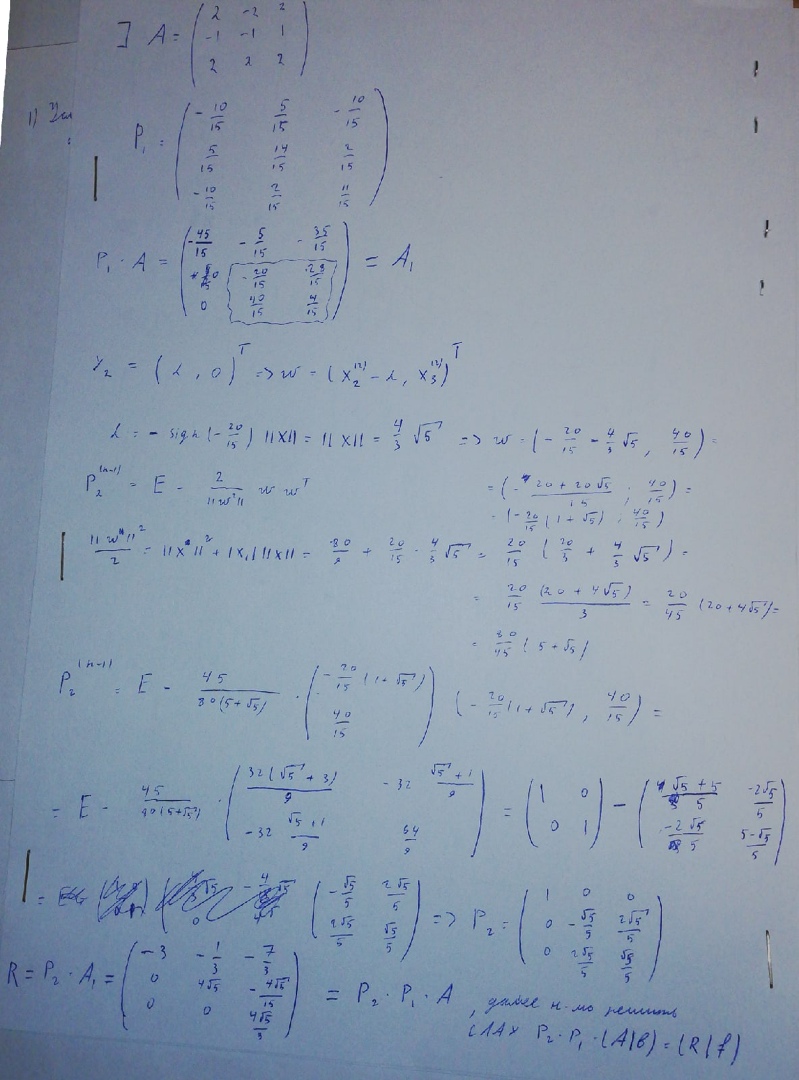 ] A = ( 2 -2 2
-1 -1 1
2 2 2 )
1)
P₁ = ( -10/15 5/15 -10/15
5/15 14/15 2/15
-10/15 2/15 11/15 )
P₁ · A = ( -45/15 -5/15 -35/15
0 -20/15 28/15
0 40/15 4/15 ) = A₁
Y₂ = (L, 0)ᵀ => w = (X₂⁽²⁾ - L, X₃⁽²⁾)ᵀ
L = - sign(-20/15) ||X|| = ||X|| = 4/3 √5 => w = (-20/15 - 4/3 √5, 40/15) =
P₂⁽ⁿ⁻¹⁾ = E - 2/||w²|| w wᵀ = (- 20 + 20√5 / 15 ; 40/15) =
= (-20/15 (1 + √5) ; 40/15)
||w||²/2 = ||X||² + |X₁| ||X|| = 80/9 + 20/15 · 4/3 √5 = 20/15 (20/3 + 4/3 √5) =
= 20/15 (20 + 4√5)/3 = 20/45 (20 + 4√5) =
= 80/45 (5 + √5)
P₂⁽ⁿ⁻¹⁾ = E - 45/80(5+√5) · ( -20/15 (1 + √5)
40/15 ) (-20/15 (1 + √5), 40/15) =
= E - 45/80(5+√5) · ( 32(√5 + 3)/9 -32 √5 + 1/9
-32 √5 + 1/9 64/9 ) = ( 1 0
0 1 ) - ( √5 + 5/5 -2√5/5
-2√5/5 5-√5/5 )
= ( -√5/5 2√5/5
2√5/5 √5/5 ) => P₂ = ( 1 0 0
0 -√5/5 2√5/5
0 2√5/5 √5/5 )
R = P₂ · A₁ = ( -3 -1/3 -7/3
0 4√5 -4√5/15
0 0 4√5/3 ) = P₂ · P₁ · A , далее н-мо решить
СЛАУ P₂ · P₁ · (A|b) = (R|f)